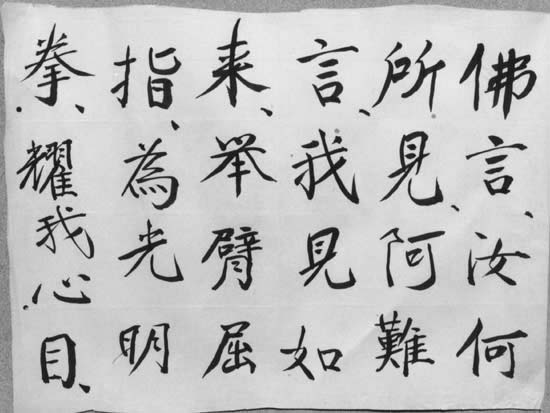 佛言、汝何
所見、阿難
言、我見如
来、举臂屈
指、為光明
拳、耀我心目、